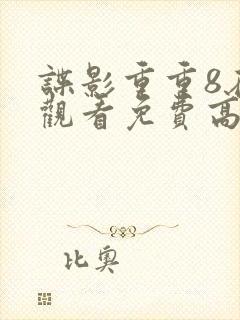 諜影重重8
觀看免費高
比奧